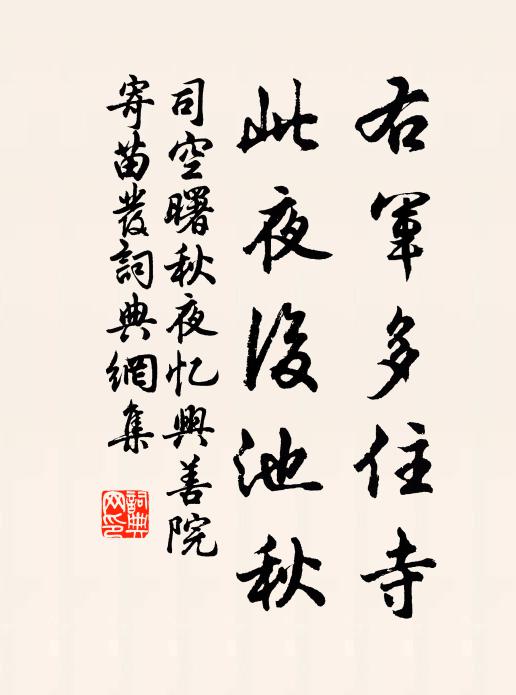 右軍多住寺
此夜後池秋
司空曙秋夜忆興善院
寄苗發詞典網集
詞典网印